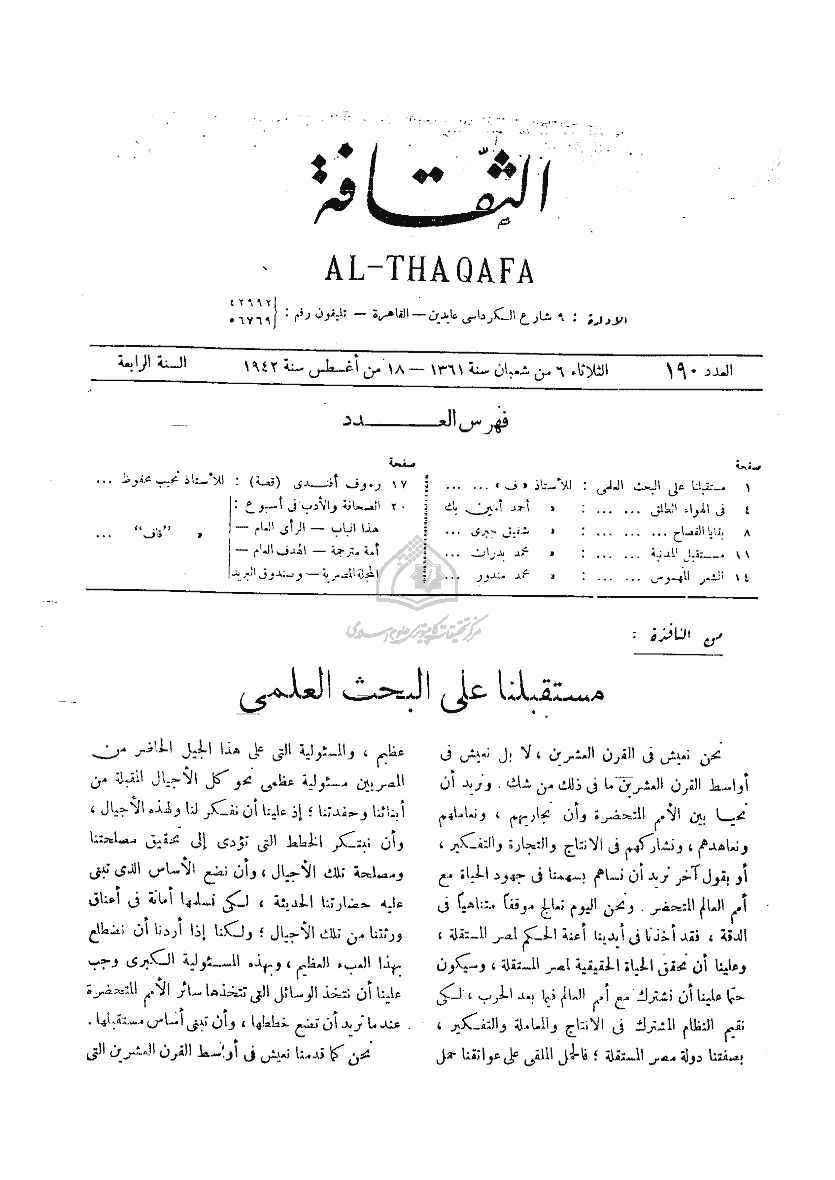 الثقافة
AL-THAQAFA
الادارة : ٩ شارع الكرداسى عابدين — القاهرة — تليفون رقم : ٤٢٩٩٢
٥٦٧٦٩
العدد ١٩٠ الثلاثاء ٦ من شعبان سنة ١٣٦١ — ١٨ من أغسطس سنة ١٩٤٢ السنة الرابعة
فهرس العـــــــدد
صفحة
١ مستقبلنا على البحث العلمى : للأستاذ « ف » ... ...
٤ فى الهواء الطلق ... ... ... : » أحمد أمين بك
٨ بقايا الفصاح ... ... ... ... : » شفيق جبرى ...
١١ مستقبل المدنية ... ... ... : » محمد بدران ...
١٤ الشعر المهموس ... ... ... : » محمد مندور ...
صفحة
١٧ رءوف أفندى (قصة) : للأستاذ نجيب محفوظ ...
٢٠ الصحافة والأدب فى أسبوع :
هذا الباب — الرأى العام —
أمة مترجمة — الهدف العام —
المجلة المصرية — وصندوق البريد
» "قاف" ...
مركز تحقيقات كامپيوتري علوم اسلامي
من النافذة :
مستقبلنا على البحث العلمى
نحن نعيش فى القرن العشرين ، لا بل نعيش فى
أواسط القرن العشرين ما فى ذلك من شك . ونريد أن
نحيا بين الأمم المتحضرة وأن نجاريهم ، ونعاملهم
ونعاهدهم ، ونشاركهم فى الانتاج والتجارة والتفكير ،
أو بقول آخر نريد أن نساهم بسهمنا فى جهود الحياة مع
أمم العالم المتحضر . ونحن اليوم نعالج موقفاً متناهياً فى
الدقة ، فقد أخذنا فى أيدينا أعنة الحكم لمصر المستقلة ،
وعلينا أن نحقق الحياة الحقيقية لمصر المستقلة ، وسيكون
حتما علينا أن نشترك مع أمم العالم فيما بعد الحرب ، لكى
نقيم النظام المشترك فى الانتاج والمعاملة والتفكير ،
بصفتنا دولة مصر المستقلة ؛ فالحمل الملقى على عواتقنا حمل
عظيم ، والمسئولية التى على هذا الجيل الحاضر من
المصريين مسئولية عظمى نحو كل الأجيال المقبلة من
أبنائنا وحفدتنا ؛ إذ علينا أن نفكر لنا ولهذه الأجيال ،
وأن نبتكر الخطط التى تؤدى إلى تحقيق مصلحتنا
ومصلحة تلك الأجيال ، وأن نضع الأساس الذى تبنى
عليه حضارتنا الحديثة ، لكى نسلمها أمانة فى أعناق
ورثتنا من تلك الأجيال ؛ ولكنا إذا أردنا أن نضطلع
بهذا العبء العظيم ، وبهذه المسئولية الكبرى وجب
علينا أن نتخذ الوسائل التى تتخذها سائر الأمم المتحضرة
عند ما تريد أن تضع خططها ، وأن تبنى أساس مستقبلها .
نحن كما قدمنا نعيش فى أواسط القرن العشرين التى